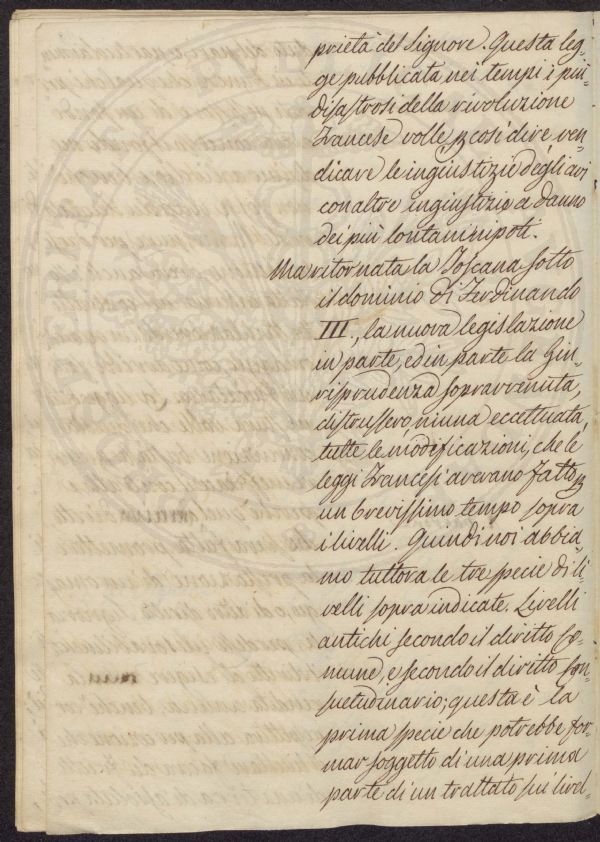 prietà del Signore. Questa leg-
ge pubblicata nei tempi i più
disastrosi della rivoluzione
Francese volle p così dire ven-
dicare le ingiustizie degli avi
con altre ingiustizie a danno
dei più lontani nipoti.
Ma ritornata la Toscana sotto
il dominio di Ferdinando
III., la nuova legislazione
in parte, ed in parte la Giu-
risprudenza sopravvenuta,
distrussero, niuna eccettuata,
tutte le modificazioni, che le
leggi Francesi avevano fatto p
un brevissimo tempo sopra
i livelli. Quindi noi abbia-
mo tuttora le tre specie di li-
velli sopra indicate. Livelli
antichi secondo il diritto Co-
mune, e secondo il diritto Con-
suetudinario; questa è la
prima specie che potrebbe for-
mar soggetto di una prima
parte di un trattato sui livel-